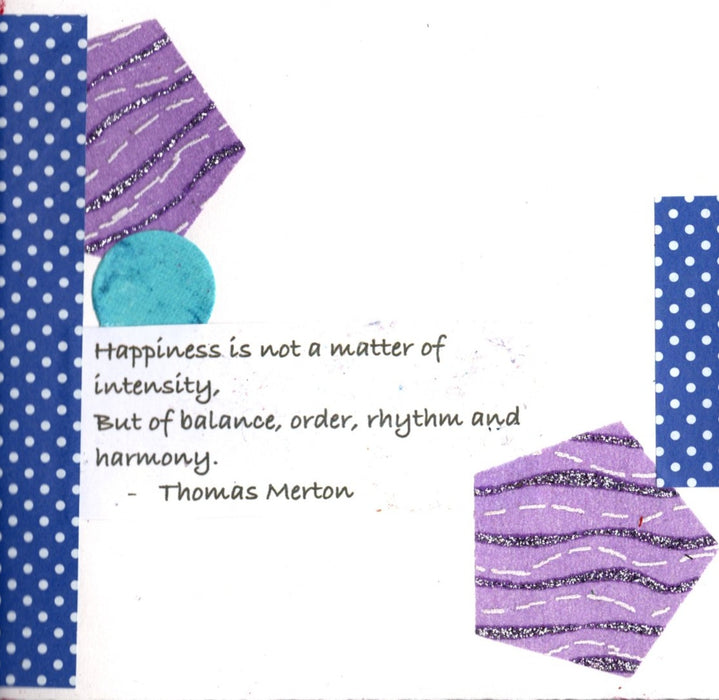 Happiness is not a matter of
intensity,
But of balance, order, rhythm and
harmony.
- Thomas Merton